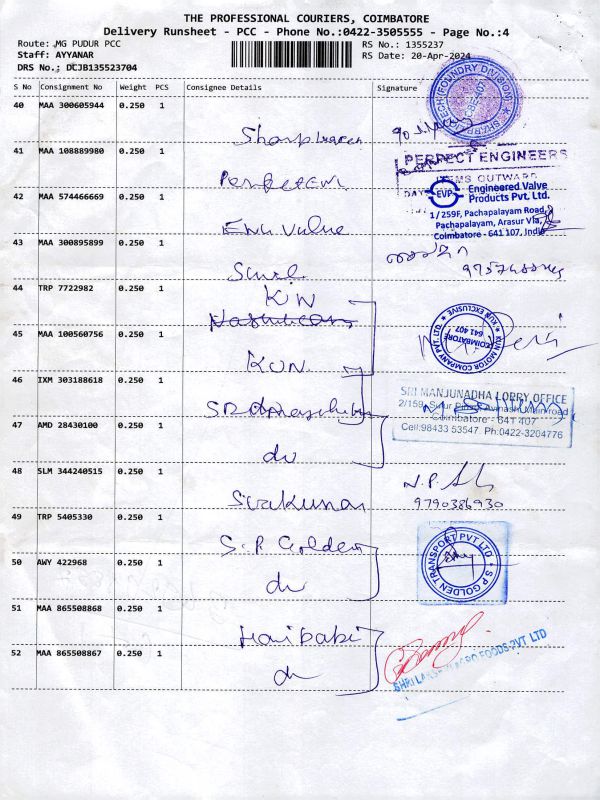 THE PROFESSIONAL COURIERS, COIMBATORE
Delivery Runsheet - PCC - Phone No.:0422-3505555 - Page No.:4
Route: MG PUDUR PCC
RS No.: 1355237
Staff: AYYANAR
RS Date: 20-Apr-2024
DRS No.; DCJB135523704
S No Consignment No Weight PCS Consignee Details Signature
40 MAA 300605944 0.250 1
41 MAA 108889980 0.250 1
PERFECT ENGINEERS
ITEMS OUTWARD
42 MAA 574466669 0.250 1
EVP Engineered Valve
Products Pvt. Ltd.
1/259F, Pachapalayam Road,
Pachapalayam, Arasur Via,
Coimbatore - 641 107, India
Eng. Value
43 MAA 300895899 0.250 1
44 TRP 7722982 0.250 1
KUN
KUN MOTOR COMPANY PVT. LTD.
KUN EXCLUSIVE
COIMBATORE
641 407
45 MAA 100560756 0.250 1
KUN.
46 IXM 303188618 0.250 1
SRI MANJUNADHA LORRY OFFICE
Coimbatore - 641 407
Cell:98433 53547 Ph:0422-3204776
47 AMD 28430100 0.250 1
do
48 SLM 344240515 0.250 1
Sivakumar
9790386930
49 TRP 5405330 0.250 1
S.P Golden
S P GOLDEN TRANSPORT PVT LTD
50 AWY 422968 0.250 1
do
51 MAA 865508868 0.250 1
52 MAA 865508867 0.250 1
do